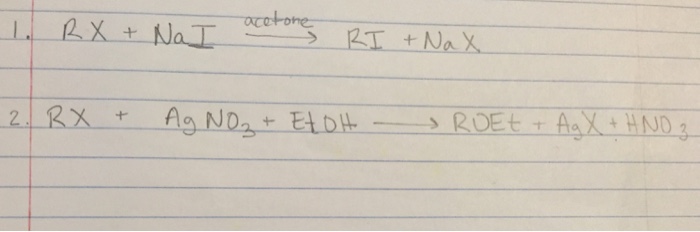 1. RX + NaI acetone → RI + NaX
2. RX + AgNO3 + EtOH → ROEt + AgX + HNO3